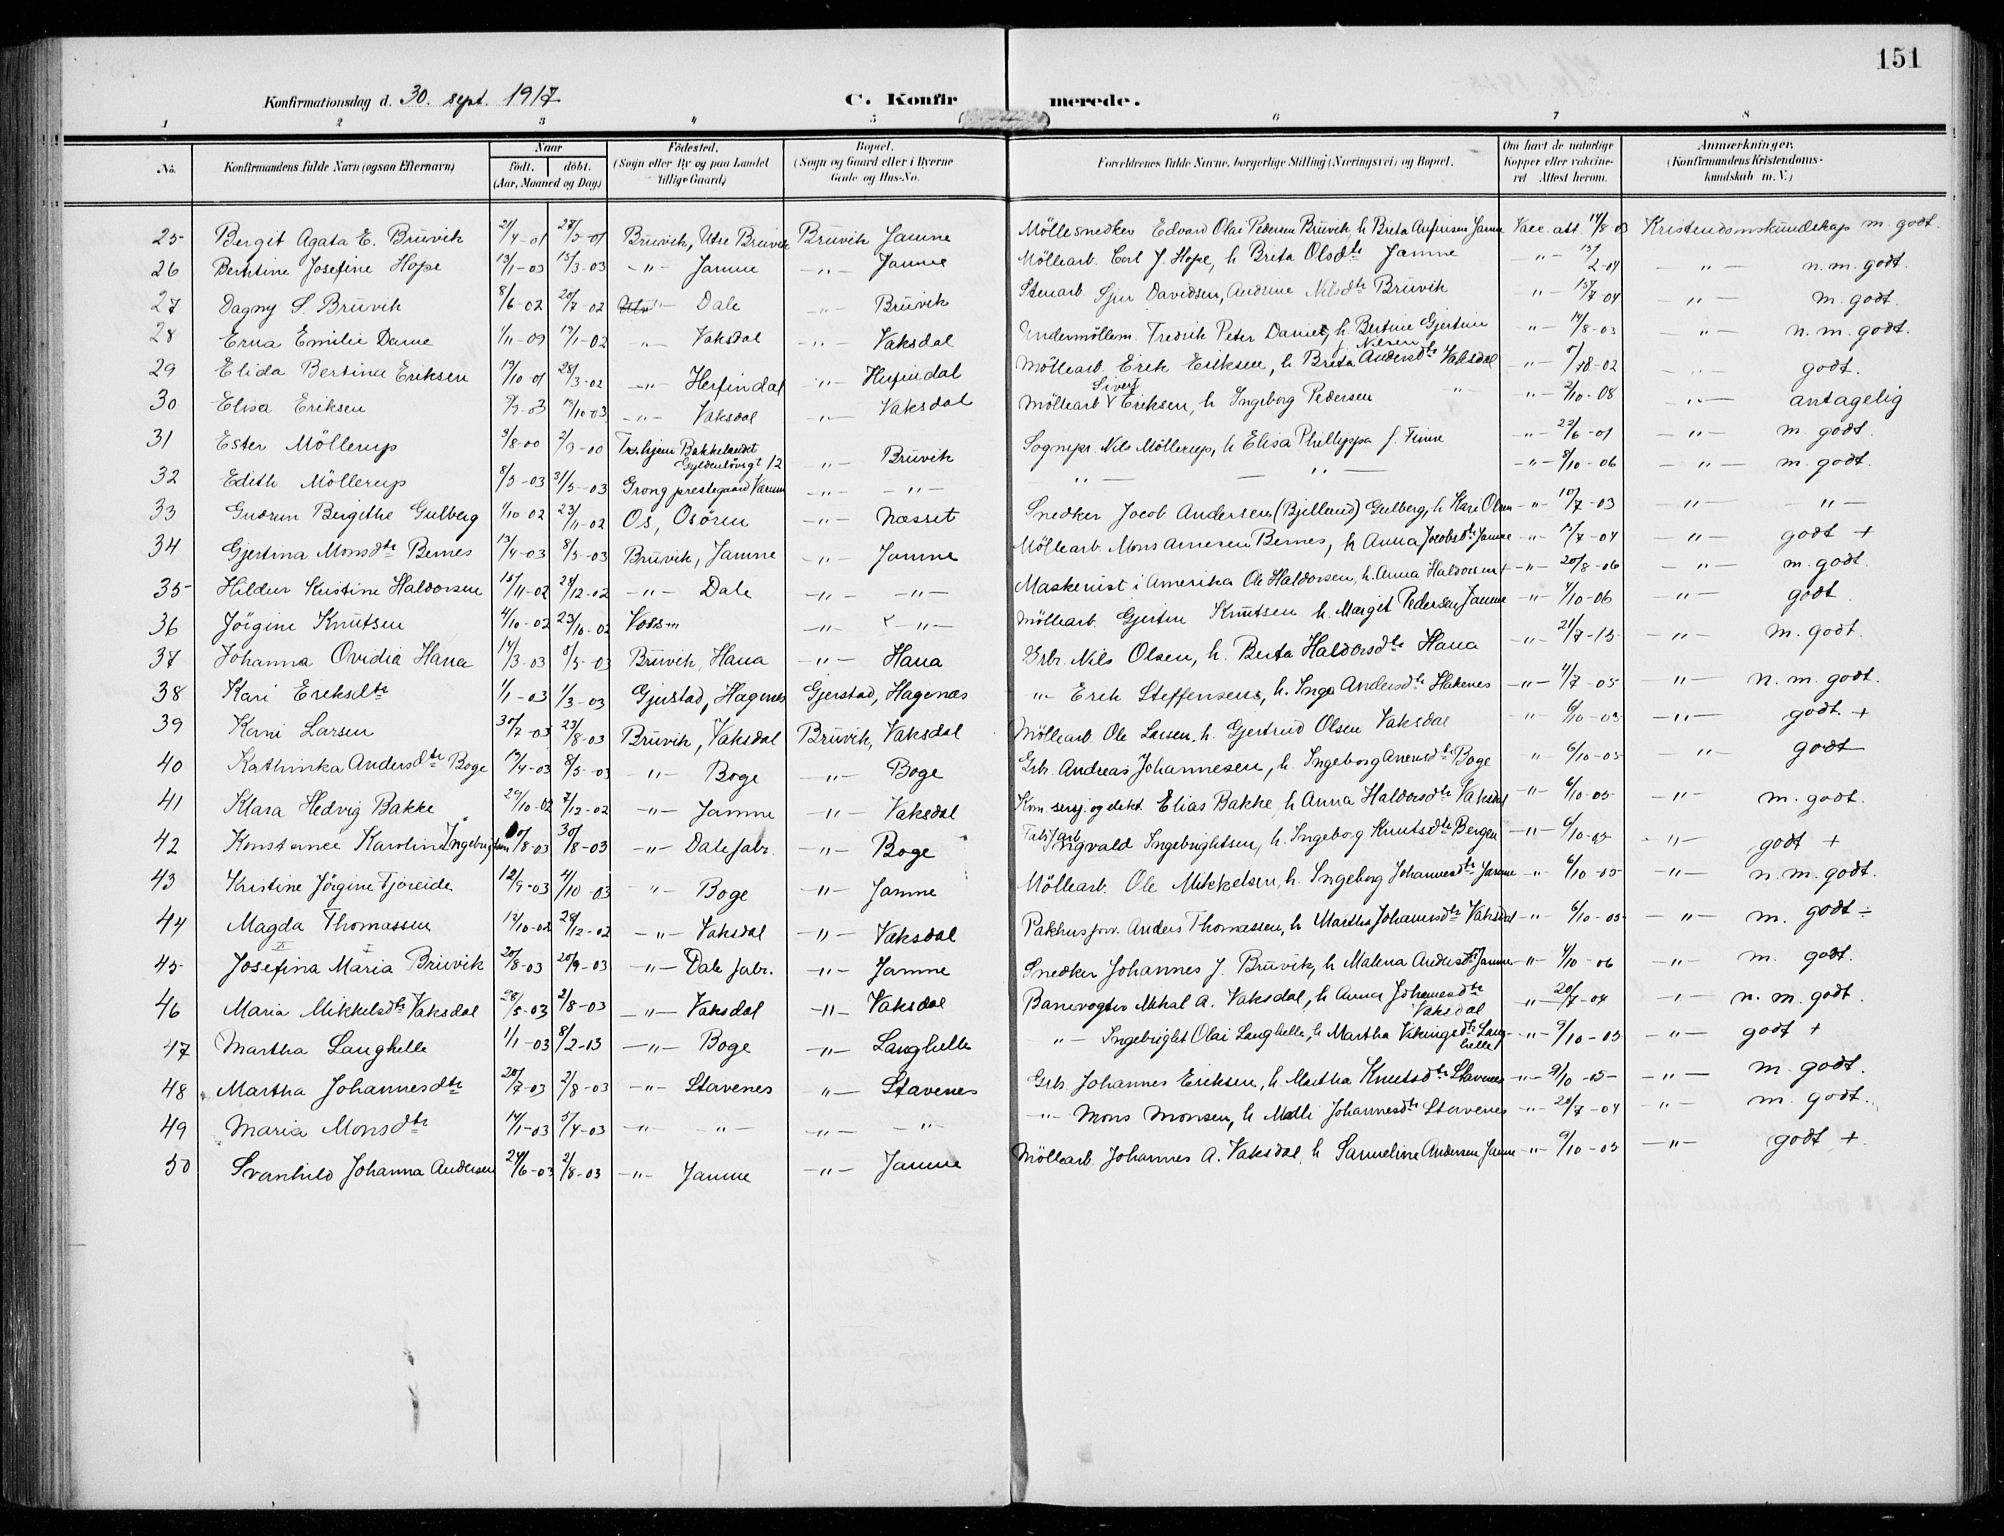 151
Konfirmationsdag d. 30. sept. 1917 C. Konfirmerede.
1 2 3 4 5 6 7 8
No. Konfirmandens fulde Navn (ogsaa Efternavn) Naar födt. döbt. (Aar, Maaned og Dag) Födested. (Sogn eller By og paa Landet tillige Gaard) Bopæl. (Sogn og Gaard eller i Byerne Gade og Hus-No. Foreldrenes fulde Navne, borgerlige Stilling (Næringsvei) og Bopæl. Om havt de naturlige Kopper eller vakcineret Attest herom. Anmærkninger. (Konfirmandens Kristendomskundskab m. V.)
25 Bergit Agata E. Bruvik 21/4-01 27/5-01 Bruvik, Utre Bruvik Bruvik Jamne Möllesnedker Edvard Olai Pedersen Bruvik h Brita Anfinsen Jamne Vacc. att. 14/8 03 Kristendomskundskap m. godt.
26 Bertine Josefine Hope 13/1-03 15/3-03 -"- Jamne -"- Jamne Möllearb. Carl J. Hope, h Brita Olsdtr Jamne -"- 15/2-04 -"- n. m. godt.
27 Dagny S. Bruvik 8/6-02 20/7-02 -"- Dale -"- Bruvik Stenarb. Sjur Davidsen, Andrine Nilsdtr Bruvik -"- 15/7-04 -"- m. godt.
28 Erna Emilie Danie 1/11-09 19/1-02 -"- Vaksdal -"- Vaksdal Undermöllem. Fredrik Peter Daniel, h. Bertine Gjertine f. Nilsen -"- 14/8-03 -"- n. m. godt.
29 Elida Bertina Eriksen 19/10-01 28/3-02 -"- Herfindal -"- Herfindal Möllearb. Erik Eriksen, h Brita Andersdtr Vaksdal -"- -02 -"- godt.
30 Elisa Eriksen 9/9-03 19/10-03 -"- Vaksdal -"- Vaksdal Möllearb Sivert Eriksen, h Ingeborg Pedersen " -"- 2/10-08 -"- antagelig
31 Ester Möllerup 3/8-00 2/9-00 Trs.hjem Bakkelandet Gyldenlövsgt 12 -"- Bruvik Sognepr. Nils Möllerup, h Elisa Phillippa f. Finne -"- 22/6-01 -"- m. godt.
32 Edith Möllerup 8/3-03 31/5-03 Grong prestegaard -"- -"- -"- -"- -"- 8/10-06 -"- m. godt.
33 Gudrun Birgithe Gulberg 1/10-02 23/11-02 Os, Osören -"- Næsset Snedker Jacob Andersen (Bjilland) Gulberg, h Kari Olsen -"- 10/7-03 -"- -"-
34 Gjertina Monsdtr Bernes 13/4-03 8/5-03 Bruvik, Jamne -"- Jamne Möllearb. Mons Arnesen Bernes, h Anna Jacobsdtr Jamne -"- 13/7-04 -"- godt +
35 Hildur Kristine Haldorsen 15/11-02 28/12-02 -"- Dale -"- -"- Maskenist i Amerika Ole Haldorsen, h. Anna Haldorsen + -"- 20/8-06 -"- m. godt.
36 Jörgine Knutsen 4/10-02 23/10-02 Voss -"- -"- Möllearb. Gjertin Knutsen h. Margit Pedersen Jamne -"- 4/10-06 -"- godt
37 Johanna Ovidia Hana 14/3-03 8/5-03 Bruvik, Hana -"- Hana Grbr. Nils Olsen, h. Berta Haldorsdtr Hana -"- 21/7-15 -"- m. godt.
38 Kari Eriksdtr 1/1-03 1/3-03 Gjerstad, Hagenes Gjerstad, Hagenæs -"- Erik Steffensens, h. Inga Andersdtr Hakenes -"- 4/7-05 -"- n. m. godt.
39 Kari Larsen 30/7-03 23/8-03 Bruvik, Vaksdal Bruvik, Vaksdal Möllearb. Ole Larsen, h. Gjertrud Olsen Vaksdal -"- 6/10-03 -"- godt. +
40 Kathinka Andersdtr Boge 13/4-03 8/5-03 -"- Boge -"- Boge Grb. Andreas Johannesen, h. Ingeborg Arnesdtr Boge -"- 6/10-05 -"- godt
41 Klara Hedvig Bakke 29/10-02 7/12-02 -"- Jamne -"- Vaksdal Kom. sersj. og dekt. Elias Bakke, h Anna Haldorsdtr Vaksdal -"- 6/10-05 -"- m. godt.
42 Konstanee Karoline Ingebrigtsen 10/8-03 30/8-03 -"- Dale fabr. -"- Boge Fabr.arb. Sigvald Ingebrigtsen, h. Ingeborg Knutsdtr Bergen -"- 6/10-05 -"- godt +
43 Kristine Jörgine Fjoreide 12/9-03 4/10-03 -"- Boge -"- Jamne Möllearb. Ole Mikkelsen, h. Ingeborg Johannesdtr Jamne -"- 6/10-05 -"- n. m. godt.
44 Magda Thomassen 12/10-02 28/12-02 -"- Vaksdal -"- Vaksdal Pakhusforv. Anders Thomassen, h Martha Johannesdtr Vaksdal -"- 6/10-05 -"- m. godt ÷
45 Josefina Maria Bruvik 20/8-03 20/9-03 -"- Dale fabr. -"- Jamne Snedker Johannes J. Bruvik, h Malena Andersdtr Jamne -"- 4/10-06 -"- m. godt.
46 Maria Mikkelsdtr Vaksdal 28/5-03 2/8-03 -"- Vaksdal -"- Vaksdal Banevogter Mikal A. Vaksdal, h Anna Johannesdtr Vaksdal -"- 20/7-04 -"- n. m. godt.
47 Martha Langhelle 1/1-03 8/2-13 -"- Boge -"- Langhelle -"- Ingebrigt Olai Langhelle, h Martha Vikingsdtr Langhelle -"- 9/10-05 -"- godt +
48 Martha Johannesdtr 20/7-03 2/8-03 -"- Stavenes -"- Stavenes Grb. Johannes Eriksen, h. Martha Knutsdtr Stavenes -"- 9/10-05- -"- m. godt.
49 Maria Monsdtr 14/1-03 5/4-03 -"- -"- -"- -"- -"- Mons Monsen, h Malli Johannesdtr Stavenes -"- 20/7-04 -"- m. godt.
50 Svanhild Johanna Andersen 24/6-03 2/8-03 -"- Jamne -"- Jamne Möllearb. Johannes A. Vaksdal, h Sameline Andersen Jamne -"- 9/10-05 -"- godt +